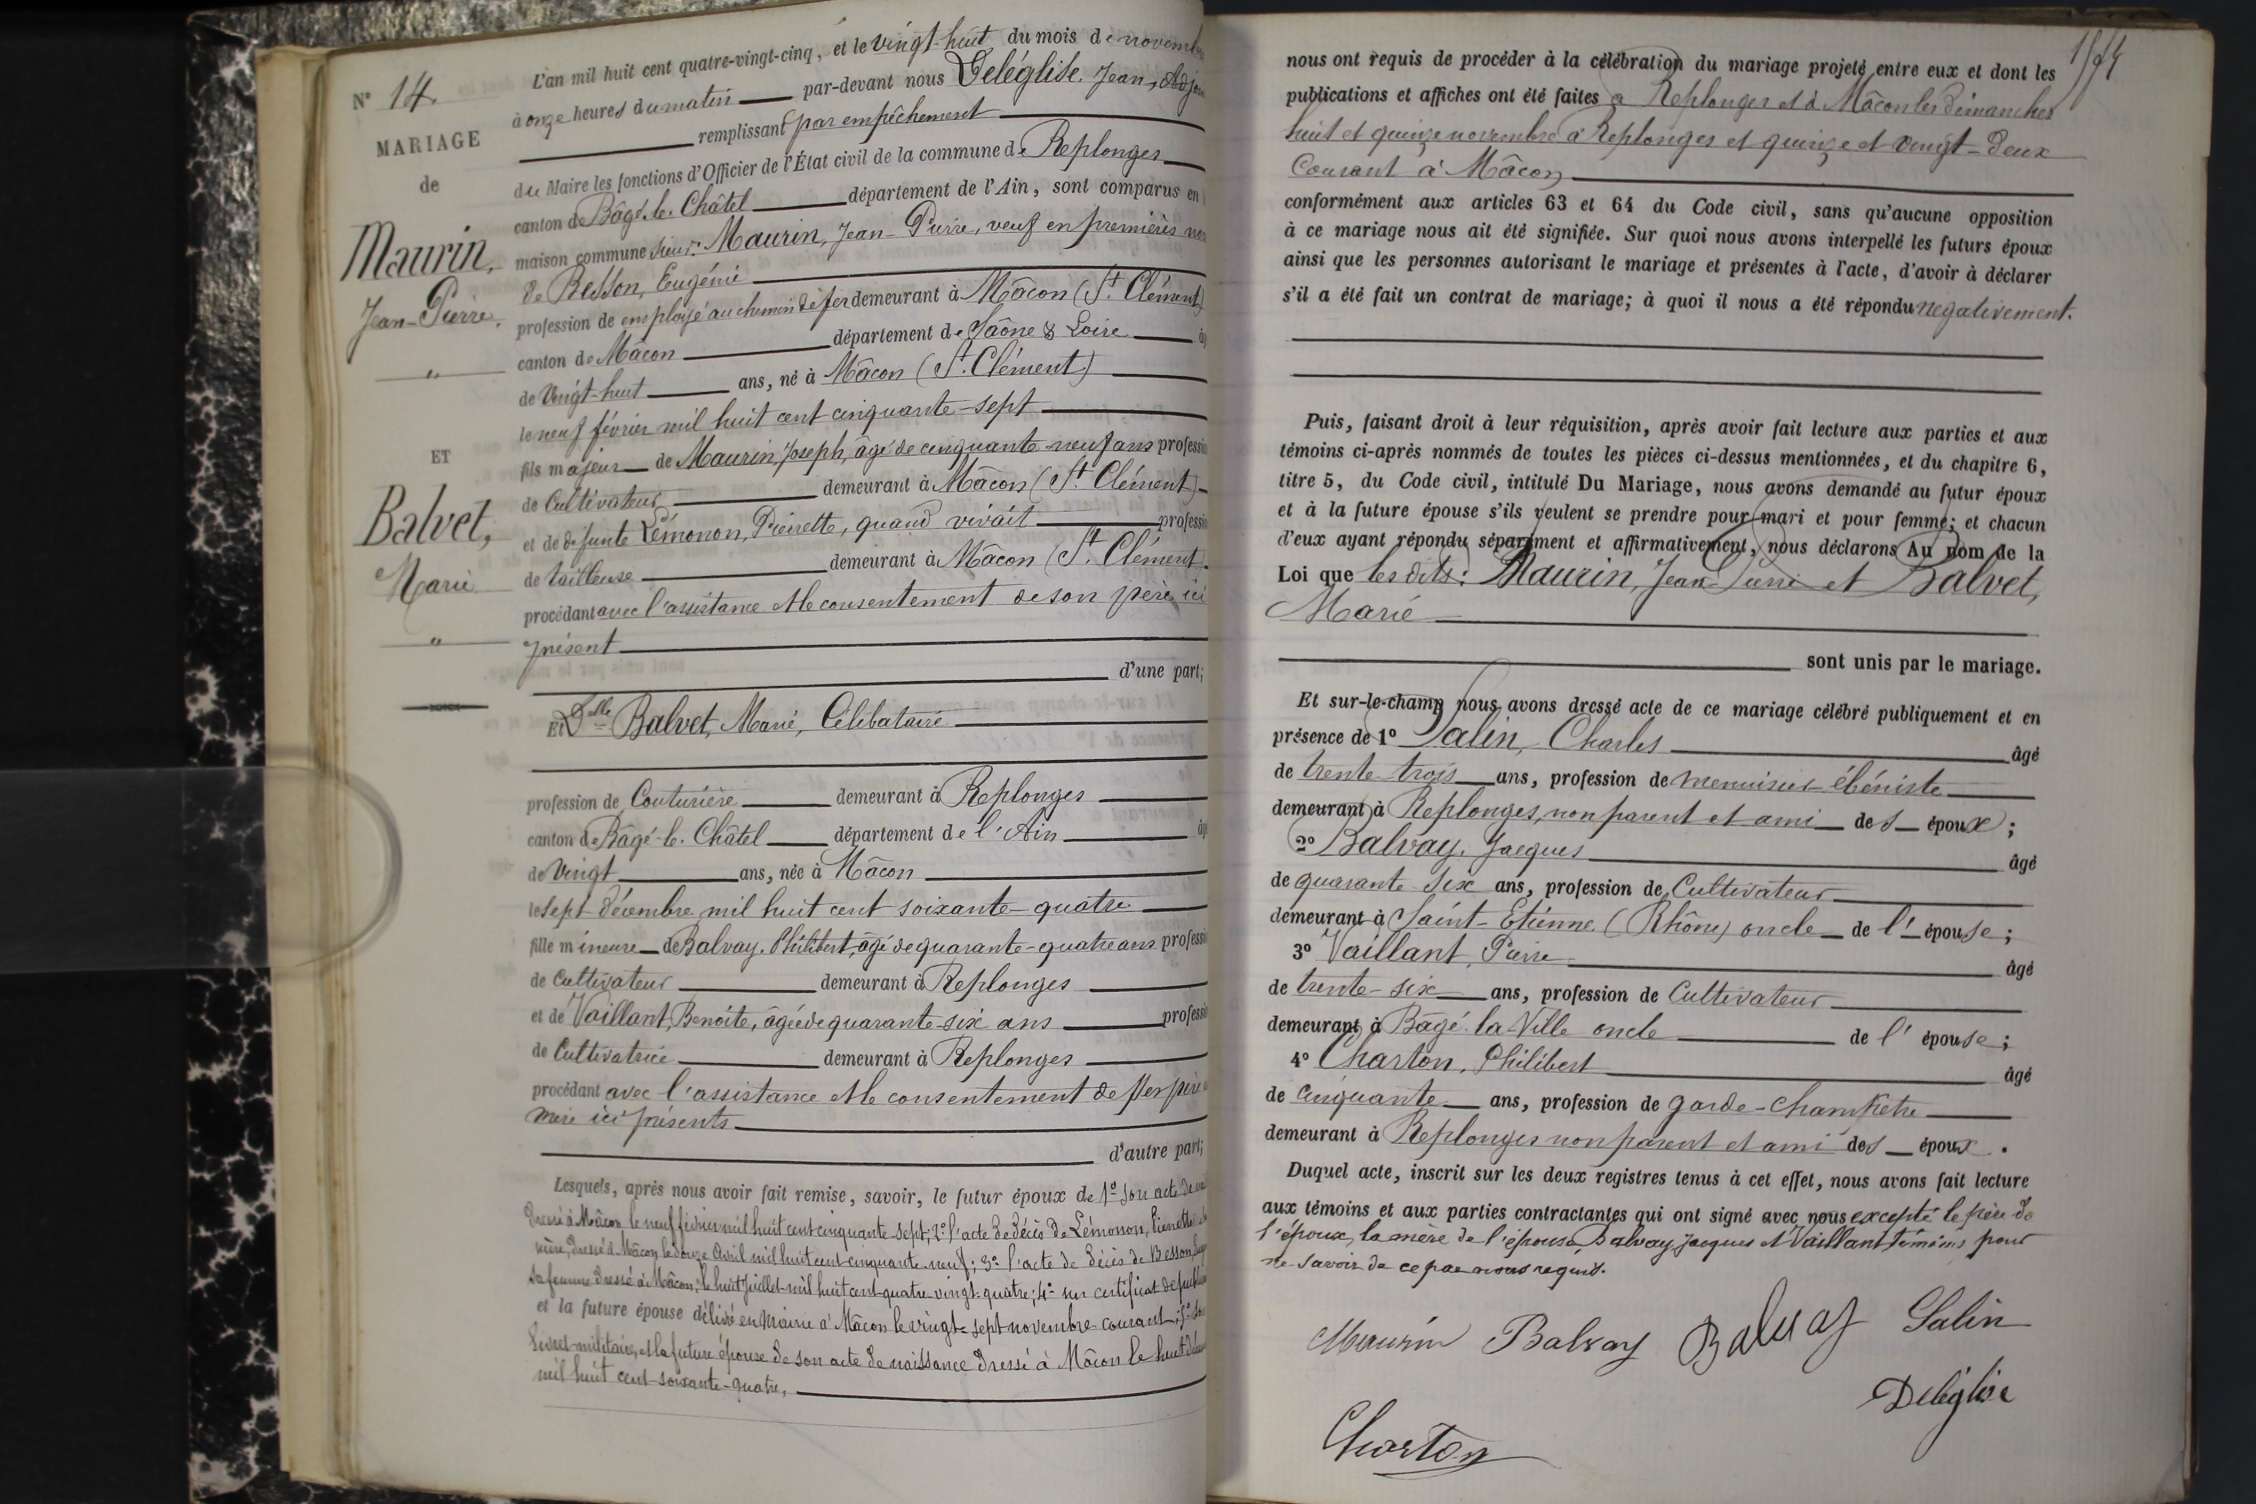 N° 14.
MARIAGE
de
Maurin,
Jean-Pierre.
"
ET
Balvet,
Marie
"
L'an mil huit cent quatre-vingt-cinq, et le vingt-huit du mois de novembre
à onze heures du matin par-devant nous Deléglise, Jean, Adjoin
remplissant par empêchement
du Maire les fonctions d'Officier de l'État civil de la commune de Replonges
canton de Bâgé-le-Châtel département de l'Ain, sont comparus en
maison commune sieur: Maurin, Jean-Pierre, veuf en premières no
de Besson, Eugénie
profession de employé au chemin de fer demeurant à Mâcon (St Clément)
canton de Mâcon département de Saône & Loire âg
de vingt-huit ans, né à Mâcon (St Clément)
le neuf février mil huit cent cinquante-sept
fils majeur de Maurin, Joseph, âgé de cinquante-neuf ans professio
de cultivateur demeurant à Mâcon (St Clément)
et de défunte Lémonon, Pierrette, quand vivait professio
de tailleuse demeurant à Mâcon (St Clément.
procédant avec l'assistance et le consentement de son père ici
présent
d'une part;
Et Dlle Balvet, Marie, Célibataire
profession de Couturière demeurant à Replonges
canton de Bâgé-le-Châtel département de l'Ain âg
de vingt ans, née à Mâcon
le sept décembre mil huit cent soixante-quatre
fille mineure de Balvay, Philibert, âgé de quarante-quatre ans professio
de cultivateur demeurant à Replonges
et de Vaillant, Benoite, âgée de quarante-six ans professio
de Cultivatrice demeurant à Replonges
procédant avec l'assistance et le consentement de ses père
mère ici présents
d'autre part;
Lesquels, après nous avoir fait remise, savoir, le futur époux de 1° son acte de
dressé à Mâcon le neuf février mil huit cent cinquante-sept; 2° l'acte de décès de Lémonon, Pierrette
mère, dressé à Mâcon le douze Avril mil huit cent cinquante-neuf; 3° l'acte de décès de Besson,
sa femme dressé à Mâcon, le huit Juillet mil huit cent quatre-vingt-quatre; 4° un certificat de
et la future épouse délivré en Mairie à Mâcon le vingt-sept novembre courant; 5° son
livret militaire, et la future épouse de son acte de naissance dressé à Mâcon le huit
mil huit cent soixante-quatre,
nous ont requis de procéder à la célébration du mariage projeté entre eux et dont les
publications et affiches ont été faites à Replonges et à Mâcon les dimanches
huit et quinze novembre à Replonges et quinze et vingt-deux
courant à Mâcon
conformément aux articles 63 et 64 du Code civil, sans qu'aucune opposition
à ce mariage nous ait été signifiée. Sur quoi nous avons interpellé les futurs époux
ainsi que les personnes autorisant le mariage et présentes à l'acte, d'avoir à déclarer
s'il a été fait un contrat de mariage; à quoi il nous a été répondu négativement.
Puis, faisant droit à leur réquisition, après avoir fait lecture aux parties et aux
témoins ci-après nommés de toutes les pièces ci-dessus mentionnées, et du chapitre 6,
titre 5, du Code civil, intitulé Du Mariage, nous avons demandé au futur époux
et à la future épouse s'ils veulent se prendre pour mari et pour femme; et chacun
d'eux ayant répondu séparément et affirmativement, nous déclarons Au nom de la
Loi que les dits: Maurin, Jean-Pierre et Balvet,
Marie
sont unis par le mariage.
Et sur-le-champ nous avons dressé acte de ce mariage célébré publiquement et en
présence de 1° Salin, Charles âgé
de trente-trois ans, profession de menuisier ébéniste
demeurant à Replonges, non parent et ami des époux;
2° Balvay, Jacques âgé
de quarante-six ans, profession de Cultivateur
demeurant à Saint-Etienne (Rhône) oncle de l'épouse;
3° Vaillant, Pierre âgé
de trente-six ans, profession de Cultivateur
demeurant à Bâgé-la-Ville oncle de l'épouse;
4° Charton, Philibert âgé
de cinquante ans, profession de garde-champêtre
demeurant à Replonges non parent et ami des époux.
Duquel acte, inscrit sur les deux registres tenus à cet effet, nous avons fait lecture
aux témoins et aux parties contractantes qui ont signé avec nous excepté le père de
l'époux, la mère de l'épouse, Balvay Jacques et Vaillant témoins pour
ne savoir de ce par nous requis.
Maurin Balvay Balvay Salin
Deléglise
Charton